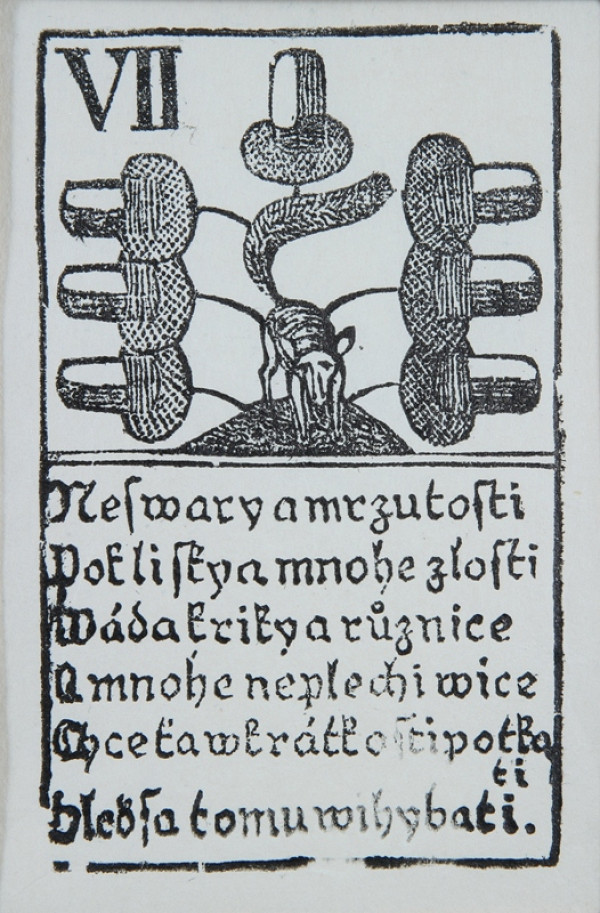 VII
Neſwary a mrzutoſti
Pokliſky a mnohe zloſti
Wáda kriky a různice
A mnohe neplechi wice
Chce ťa w krátkoſti potka
ti
hleďſa tomu wihybati.